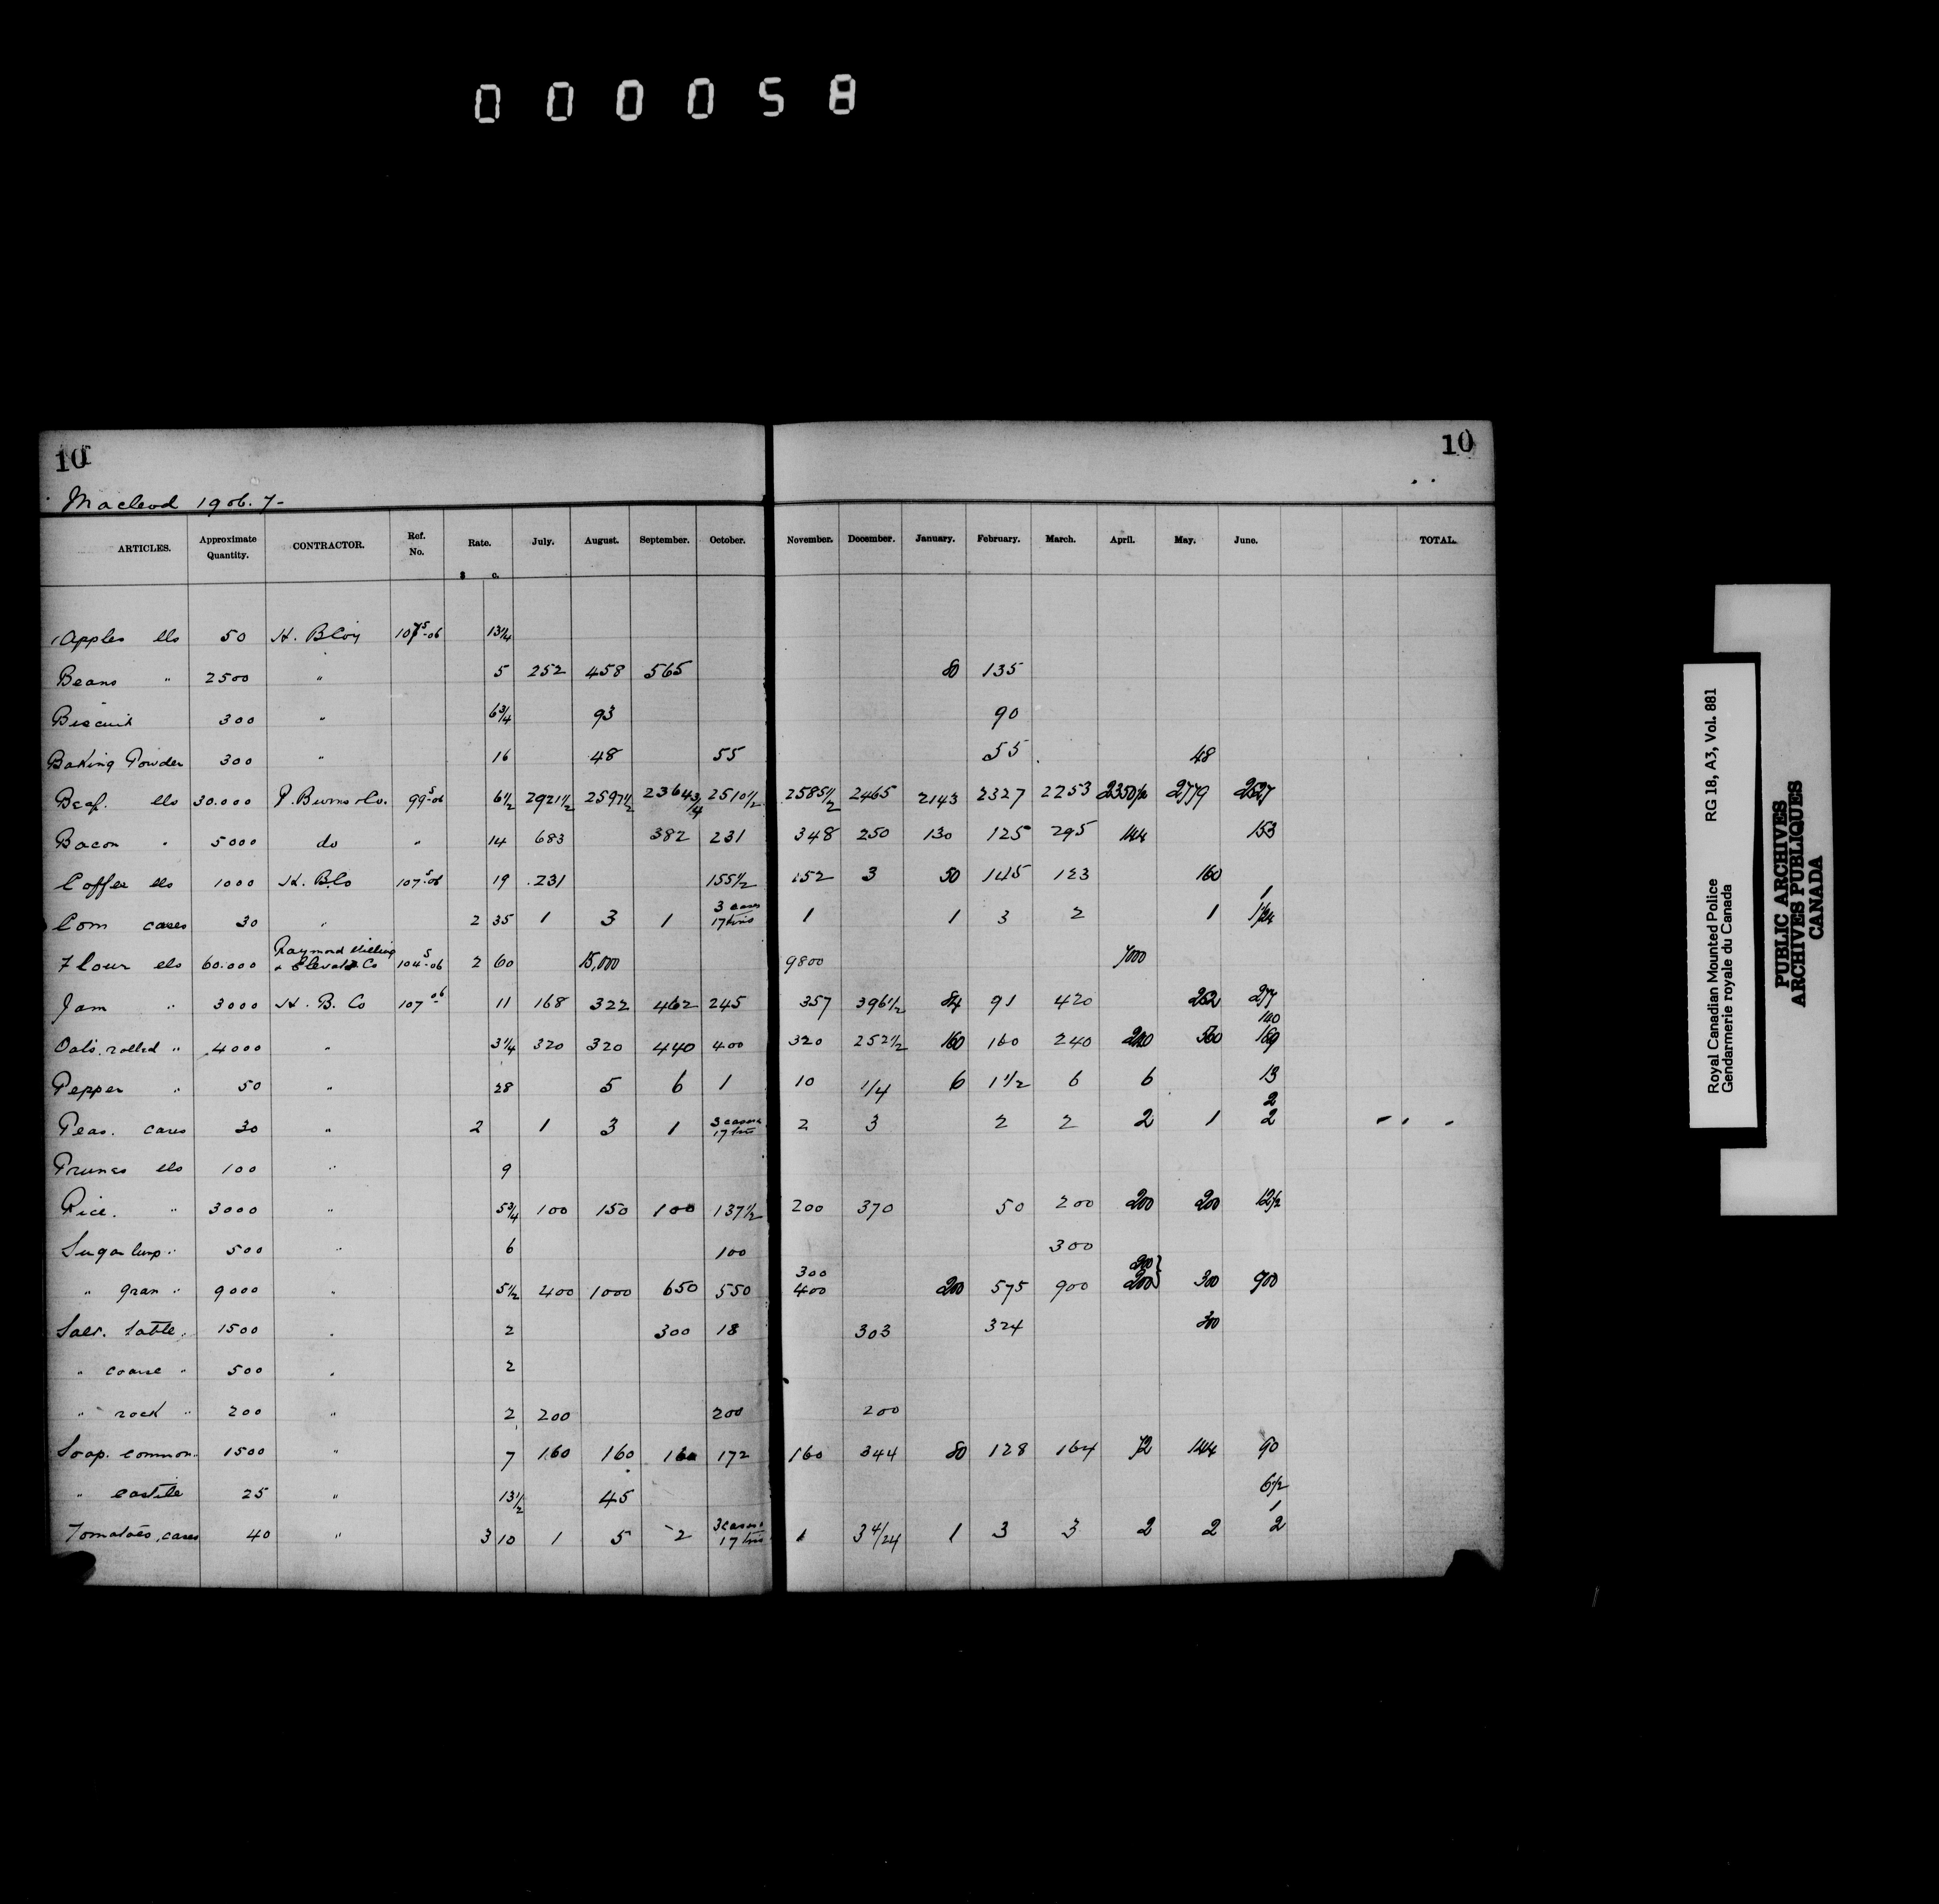 000058
10
10
Macleod 1906.7-
ARTICLES. Approximate Quantity. CONTRACTOR. Ref. No. Rate. $ c. July. August. September. October. November. December. January. February. March. April. May. June. TOTAL.
Apples lbs 50 H. B Coy 107 5-06 13 1/4
Beans " 2500 " 5 252 458 565 80 135
Biscuit 300 " 6 3/4 93 90
Baking Powder 300 " 16 48 55 55 48
Beef. lbs 30.000 P. Burns & Co. 99 5-06 6 1/2 2921 1/2 2597 1/2 2364 3/4 2510 1/2 2585 1/2 2465 2143 2327 2253 2350 1/2 2779 2527
Bacon " 5000 do " 14 683 382 231 348 250 130 125 295 144 153
Coffee lbs 1000 H. B. Co 107 5-06 19 231 155 1/2 152 3 50 145 123 160
Corn cases 30 " 2 35 1 3 1 3 cases 17 tins 1 1 3 2 1 1
Flour lbs 60.000 Raymond Milling & Elevator Co 104 5-06 2 60 15,000 9800 7000
Jam " 3000 H. B. Co 107 06 11 168 322 462 245 357 396 1/2 84 91 420 252 277
Oats. rolled " 4000 " 3 1/4 320 320 440 400 320 252 1/2 160 160 240 240 560 140 169
Pepper " 50 " 28 5 6 1 10 1/4 6 1 1/2 6 6 13
Peas. cases 30 " 2 1 3 1 3 cases 17 tins 2 3 2 2 2 1 2 2
Prunes lbs 100 " 9
Rice. " 3000 " 5 3/4 100 150 100 137 1/2 200 370 50 200 200 200 12 1/2
Sugar lump " 500 " 6 100 300
" gran " 9000 " 5 1/2 400 1000 650 550 300 400 200 575 900 200 200 } 300 900
Salt. table " 1500 " 2 300 18 303 324 300
" coarse " 500 " 2
" rock " 200 " 2 200 200 200
Soap. common. 1500 " 7 160 160 160 172 160 344 80 128 164 72 144 90
" castile 25 " 13 1/2 45 6 1/2
Tomatoes, cases 40 " 3 10 1 5 2 3 cases 17 tins 1 3 4/24 1 3 3 2 2 1 2
Royal Canadian Mounted Police RG 18, A3, Vol. 881
Gendarmerie royale du Canada
PUBLIC ARCHIVES
ARCHIVES PUBLIQUES
CANADA